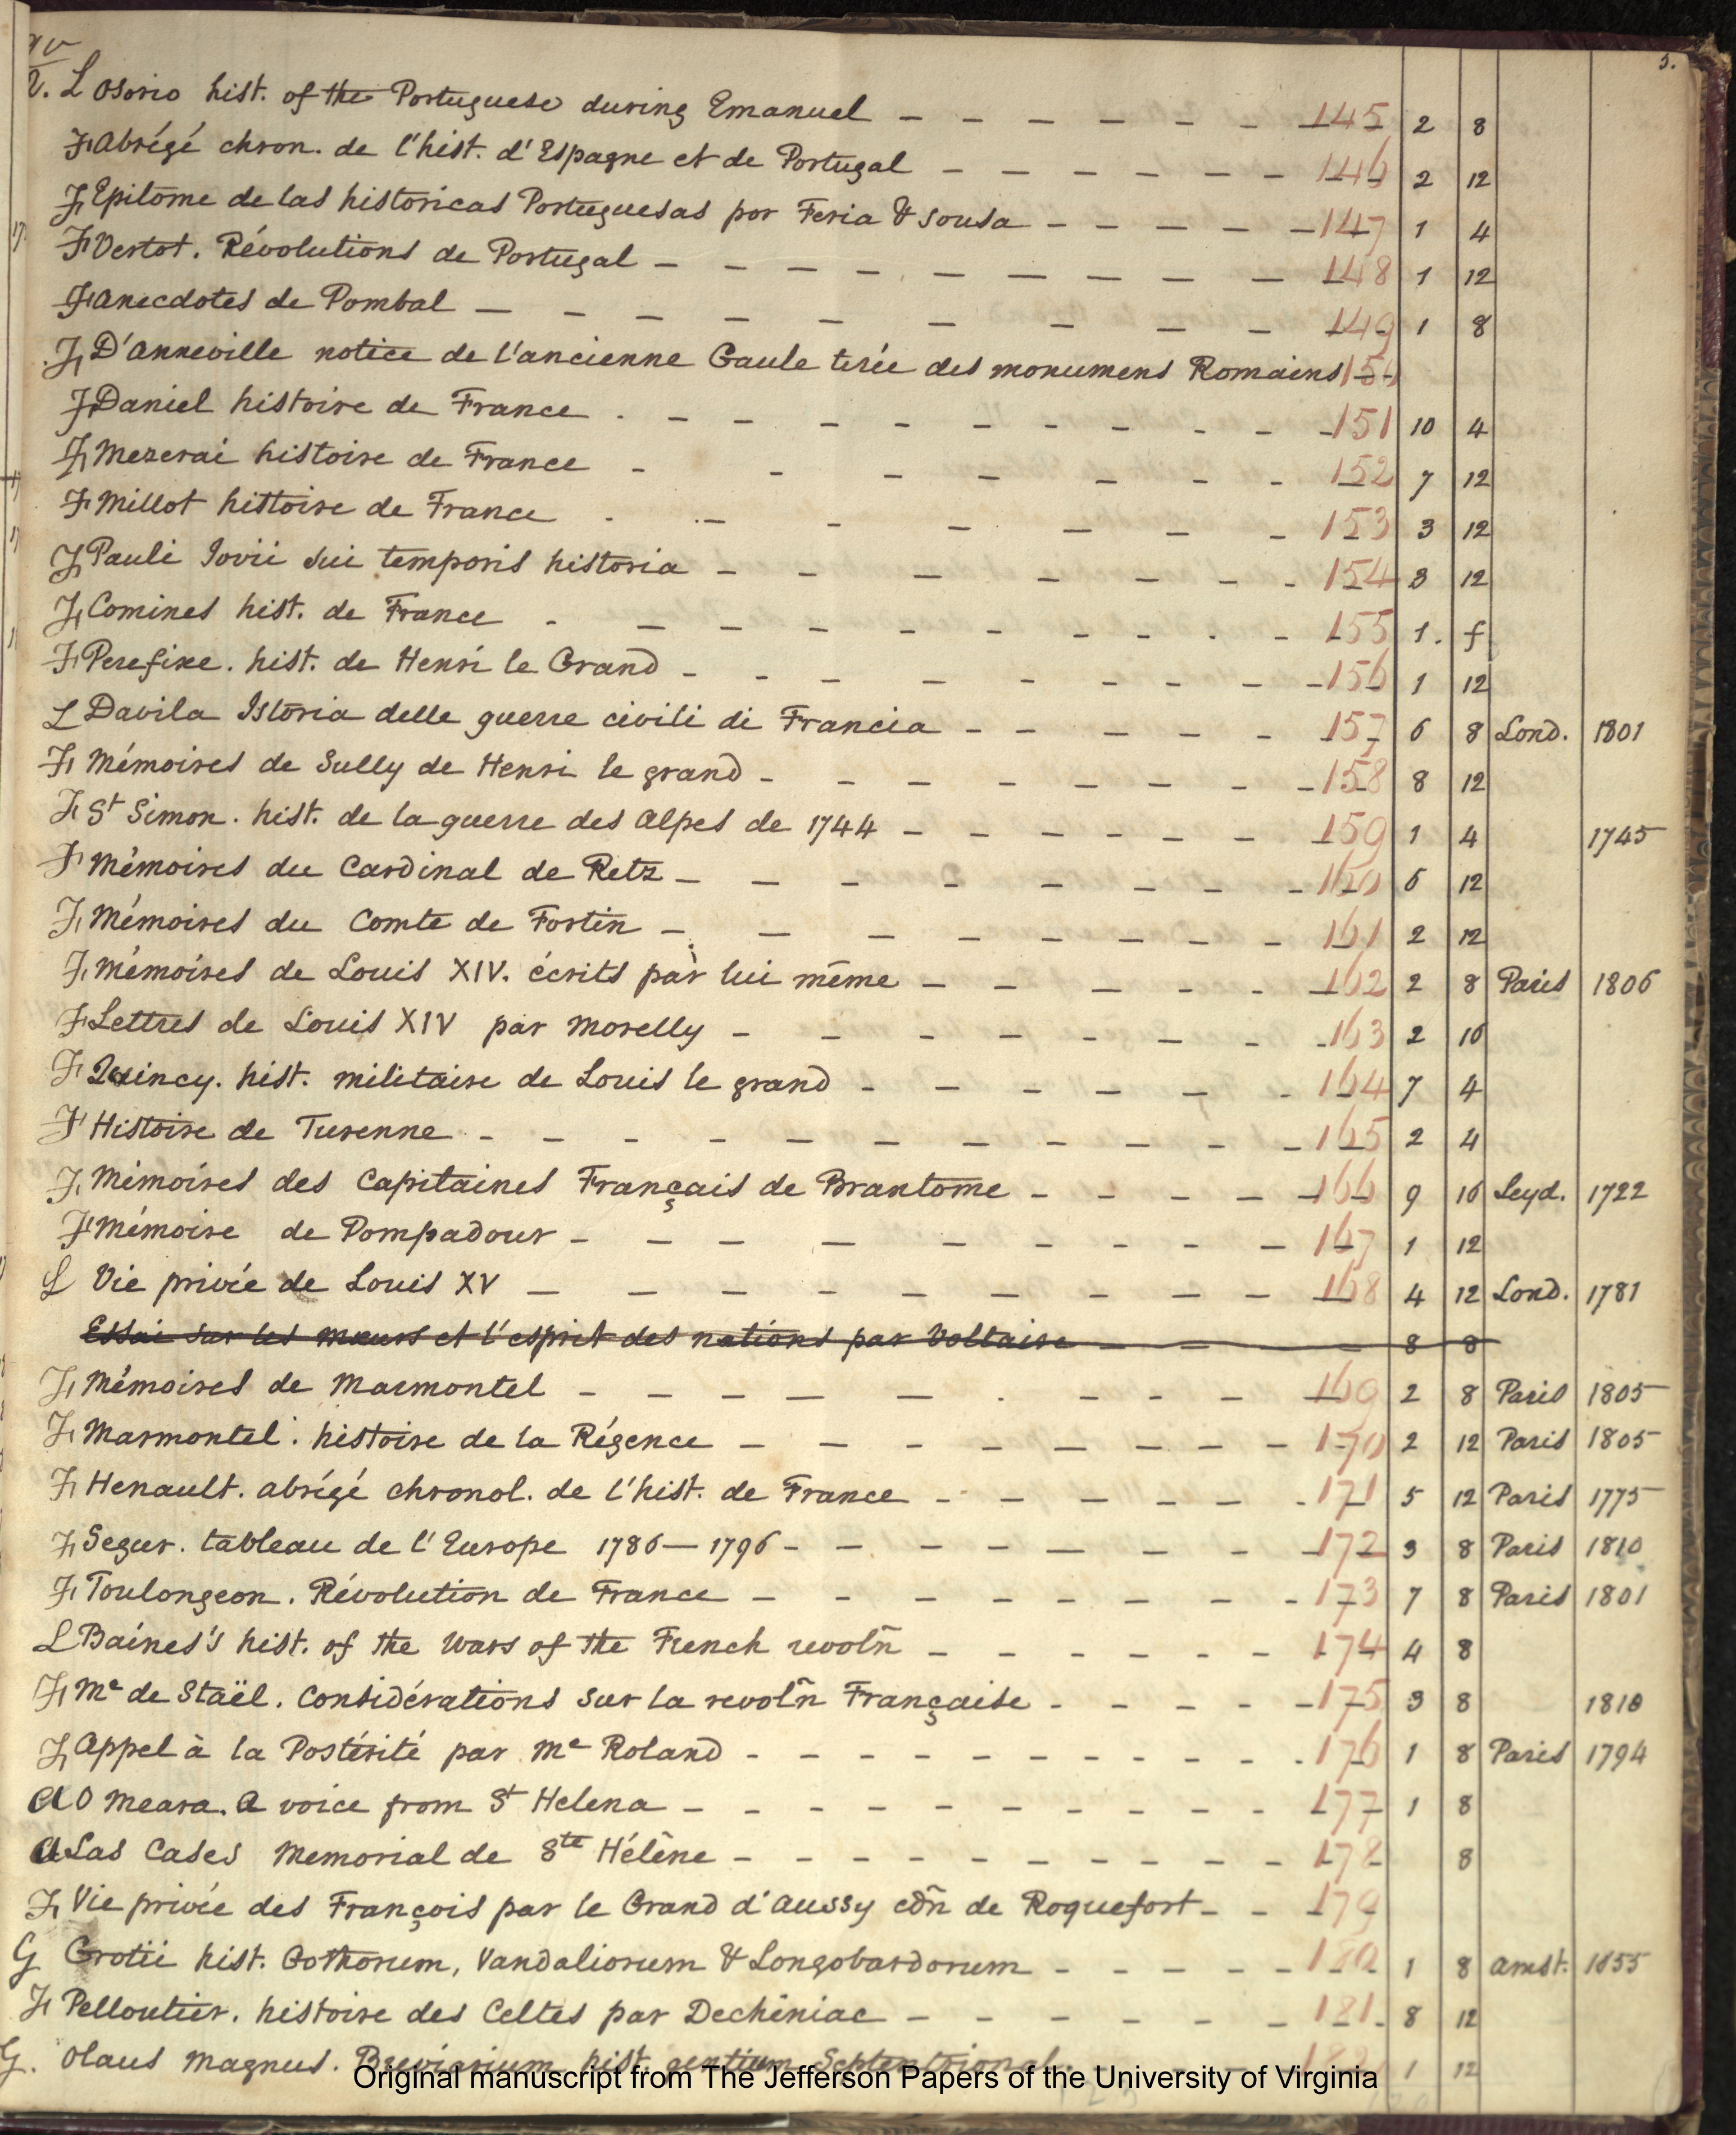 5.
2. L Osorio hist. of the Portuguese during Emanuel 145 2 8
F Abrégé chron. de l'hist. d'Espagne et de Portugal 146 2 12
F Epitome de las historicas Portuguesas por Feria & Sousa 147 1 4
F Vertot. Révolutions de Portugal 148 1 12
F Anecdotes de Pombal 149 1 8
F D'Anneville notice de l'ancienne Gaule tirée des monumens Romains 150
F Daniel histoire de France 151 10 4
F Mezerai histoire de France 152 7 12
F Millot histoire de France 153 3 12
F Pauli Jovii sui temporis historia 154 3 12
F Comines hist. de France 155 1. f
F Perefixe. hist. de Henri le Grand 156 1 12
L Davila Istoria delle guerre civili di Francia 157 6 8 Lond. 1801
F Mémoires de Sully de Henri le grand 158 8 12
F St Simon. hist. de la guerre des Alpes de 1744 159 1 4 1745
F Mémoires du Cardinal de Retz 160 6 12
F Mémoires du Comte de Fortin 161 2 12
F Mémoires de Louis XIV. écrits par lui même 162 2 8 Paris 1806
F Lettres de Louis XIV par Morelly 163 2 16
F Quincy. hist. militaire de Louis le grand 164 7 4
F Histoire de Turenne 165 2 4
F Mémoires des Capitaines Français de Brantome 166 9 16 Leyd. 1722
F Mémoire de Pompadour 167 1 12
L Vie privée de Louis XV 168 4 12 Lond. 1781
Essai sur les mœurs et l'esprit des nations par Voltaire 8 8
F Mémoires de Marmontel 169 2 8 Paris 1805
F Marmontel. histoire de la Régence 170 2 12 Paris 1805
F Henault. abrégé chronol. de l'hist. de France 171 5 12 Paris 1775
F Segur. tableau de l'Europe 1786—1796 172 3 8 Paris 1810
F Toulongeon. Révolution de France 173 7 8 Paris 1801
L Baines's hist. of the wars of the French revolñ 174 4 8
F Me de Staël. Considérations sur la revolñ Française 175 3 8 1818
F Appel à la Postérité par Me Roland 176 1 8 Paris 1794
a O Meara. A voice from St Helena 177 1 8
a Las Cases Memorial de Ste Hélène 178 8
F Vie privée des François par le Grand d'Aussy edñ de Roquefort 179
G Grotii hist. Gothorum, Vandaliorum & Longobardorum 180 1 8 Amst. 1655
F Pelloutier. histoire des Celtes par Dechiniac 181 8 12
G. Olaus Magnus. Breviarium hist. gentium Septentrional. 182 1 12
Original manuscript from The Jefferson Papers of the University of Virginia